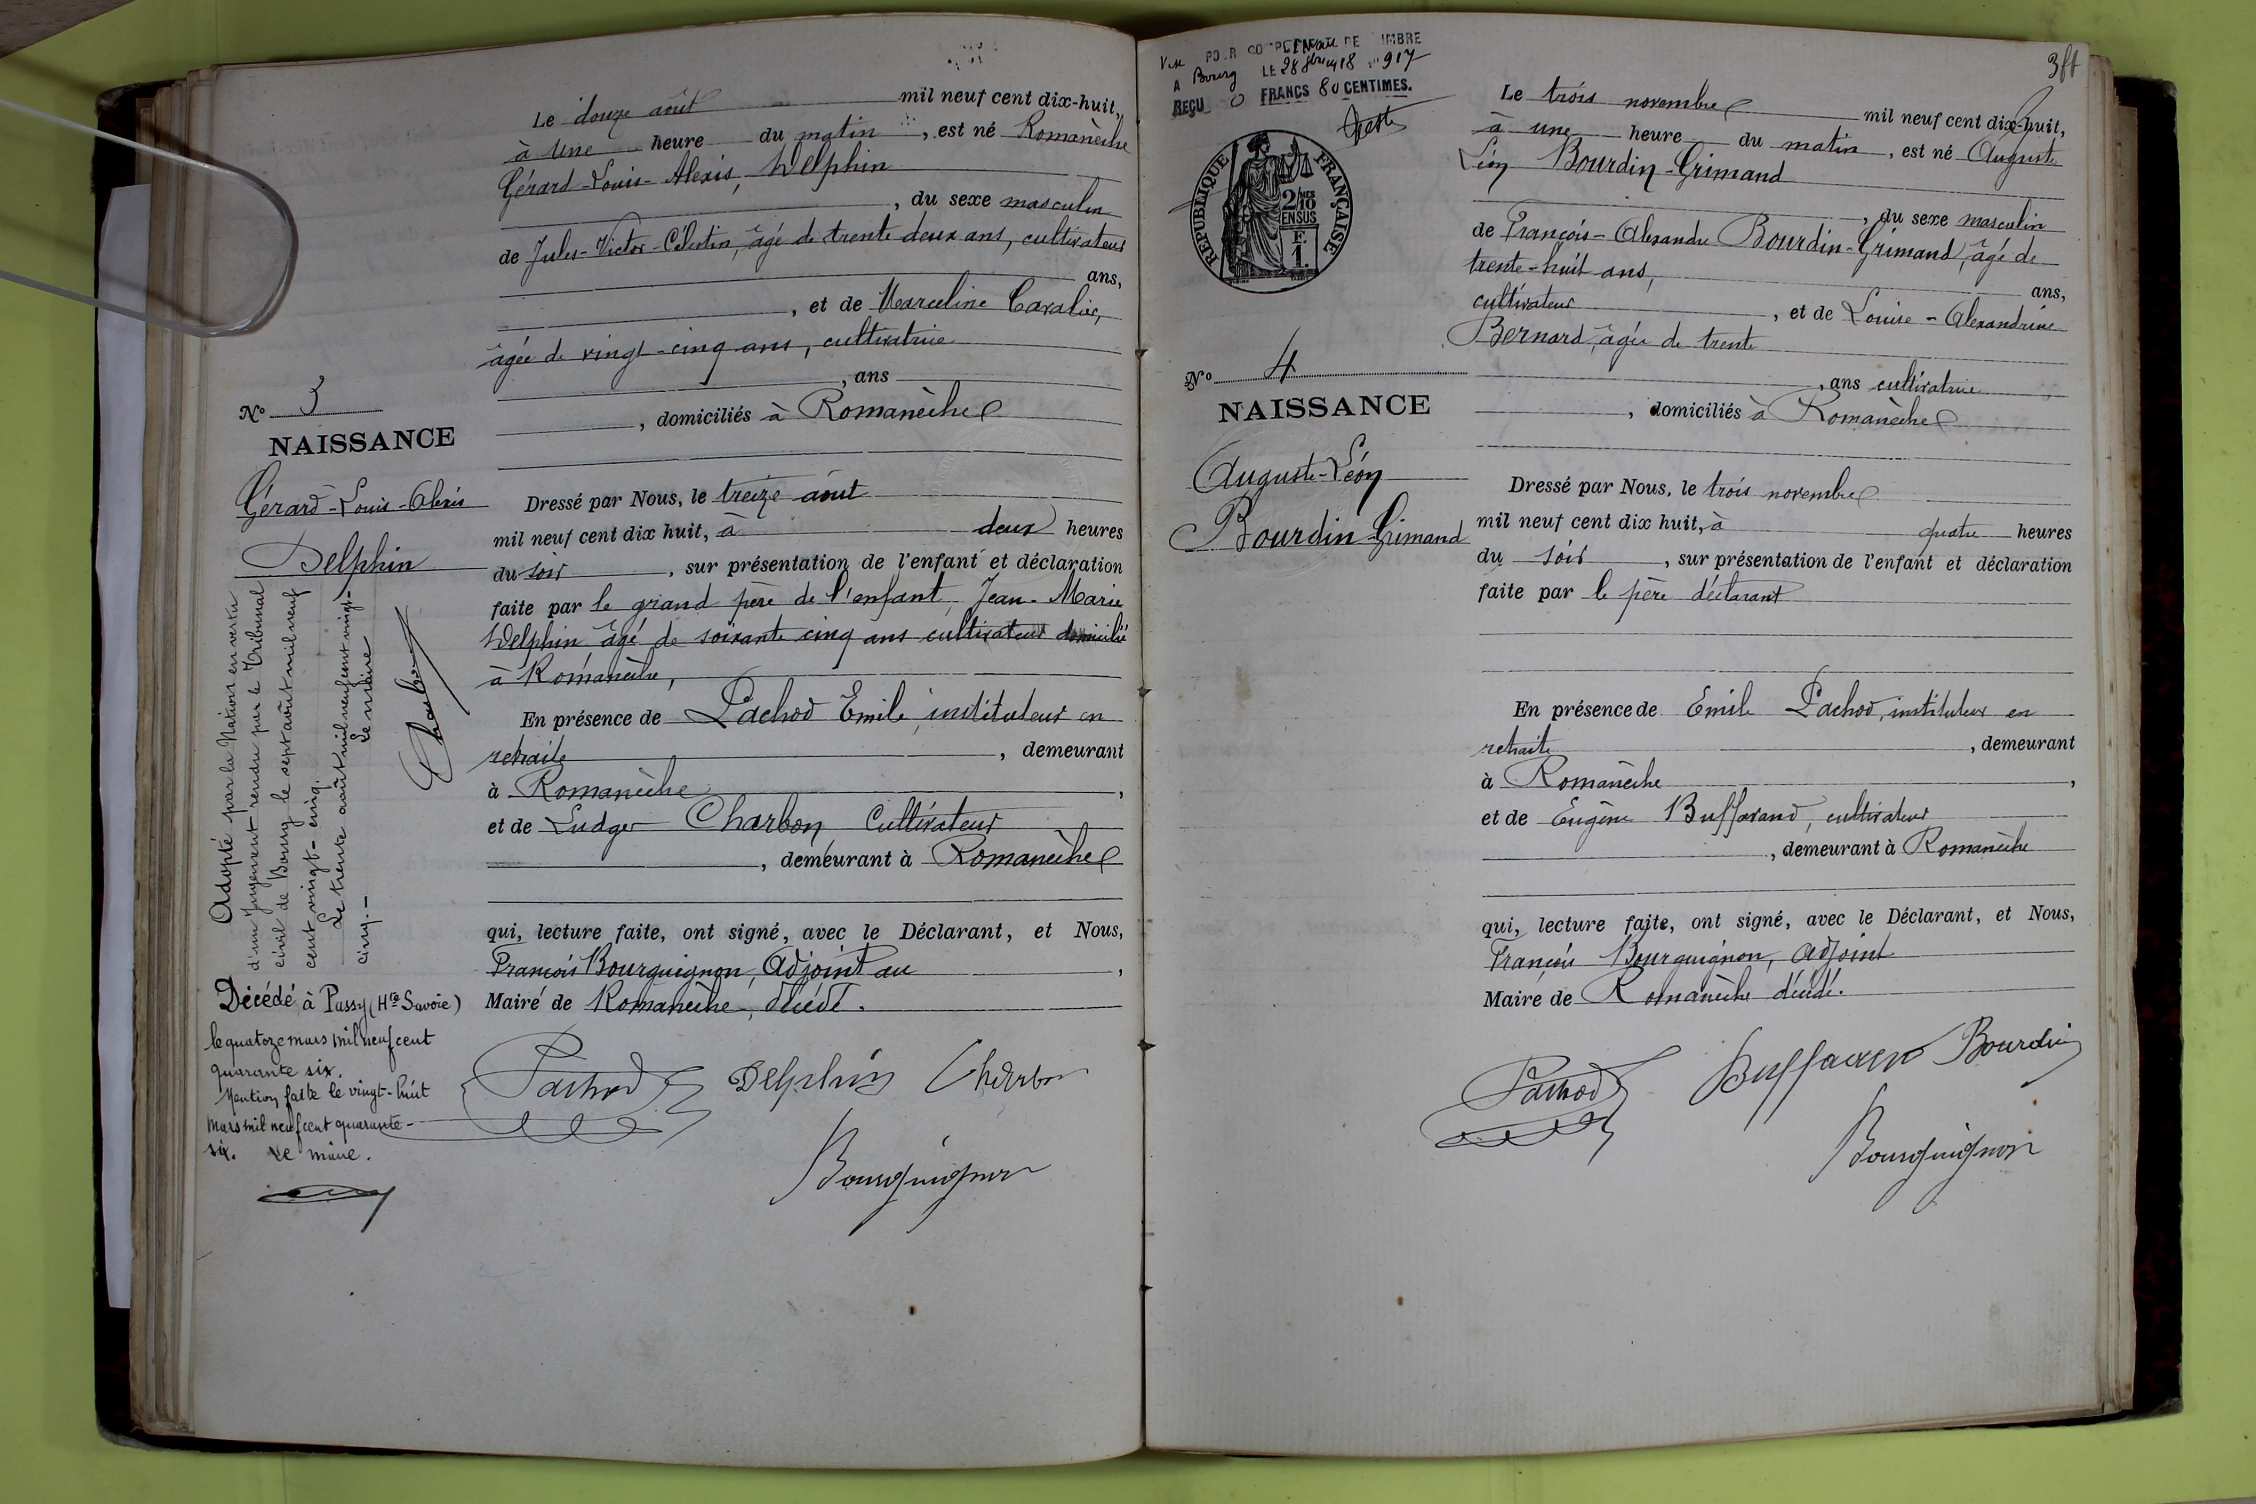 Le douze août mil neuf cent dix-huit,
à une heure du matin, est né Romanèche
Gérard-Louis-Alexis, Delphin
, du sexe masculin
de Jules-Victor-Célestin, âgé de trente deux ans, cultivateur
ans,
, et de Marceline Cavalier,
âgée de vingt-cinq ans, cultivatrice
, ans
, domiciliés à Romanèche
No 3
NAISSANCE
Gérard-Louis-Alexis
Delphin
Dressé par Nous, le treize août
mil neuf cent dix huit, à deux heures
du soir, sur présentation de l'enfant et déclaration
faite par le grand père de l'enfant, Jean-Marie
Delphin âgé de soixante cinq ans cultivateur domicilié
à Romanèche,
En présence de Pachod Emile, instituteur en
retraite, demeurant
à Romanèche,
et de Ludger Charbon Cultivateur
, demeurant à Romanèche
qui, lecture faite, ont signé, avec le Déclarant, et Nous,
François Bourguignon, Adjoint au,
Maire de Romanèche, décédé.
Pachod Delphin Charbon
Bourguignon
Adopté par la Nation en vertu
d'un jugement rendu par le Tribunal
civil de Bourg le sept août mil neuf
cent vingt-cinq.
Le trente août mil neuf cent vingt-
cinq.-
Le maire
Charbon
Décédé à Passy (Hte Savoie)
le quatorze mars mil neuf cent
quarante six.
Mention faite le vingt-huit
mars mil neuf cent quarante-
six. Le maire.
3 ft
Visé POUR COMPLÉMENT DE TIMBRE
A Bourg LE 28 1918 917
REÇU 0 FRANCS 80 CENTIMES.
RÉPUBLIQUE FRANÇAISE
2/10 MES
EN SUS
F.
1.
Le trois novembre mil neuf cent dix-huit,
à une heure du matin, est né Auguste
Léon Bourdin-Grimand
, du sexe masculin
de François-Alexandre Bourdin-Grimand, âgé de
trente-huit ans,
ans,
cultivateur, et de Louise-Alexandrine
Bernard, âgée de trente
, ans cultivatrice
, domiciliés à Romanèche
No 4
NAISSANCE
Auguste-Léon
Bourdin-Grimand
Dressé par Nous, le trois novembre
mil neuf cent dix huit, à quatre heures
du soir, sur présentation de l'enfant et déclaration
faite par le père déclarant
En présence de Emile Pachod, instituteur en
retraite, demeurant
à Romanèche,
et de Eugène Buffavand, cultivateur
, demeurant à Romanèche
qui, lecture faite, ont signé, avec le Déclarant, et Nous,
François Bourguignon, Adjoint
Maire de Romanèche décédé.
Pachod Buffavand Bourdin
Bourguignon